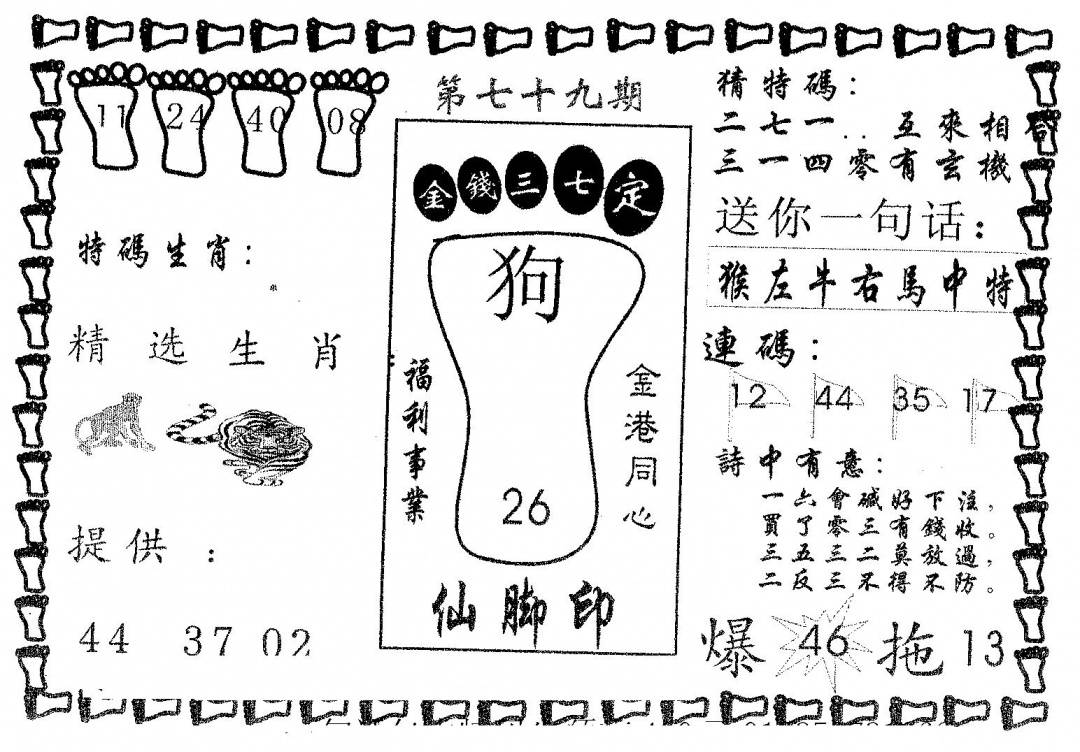 11 24 40 08
特碼生肖：
精选生肖
提供：
44 37 02
第七十九期
金錢三七定
狗
福利事業
金港同心
26
仙脚印
猜特碼：
二七一..互來相合
三一四零有玄機
送你一句话：
猴左牛右馬中特
連碼：
12 44 35 17
詩中有意：
一六會碱好下注，
買了零三有錢收。
三五三二莫放過，
二反三不得不防。
爆 46 拖 13